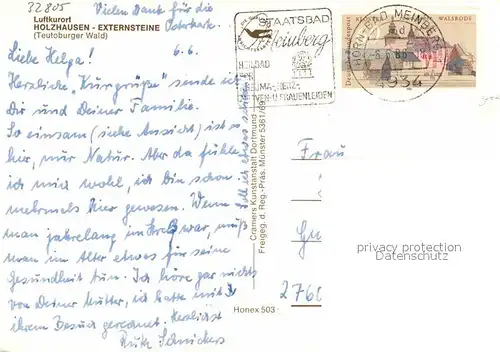 32805
Luftkurort
HOLZHAUSEN - EXTERNSTEINE
(Teutoburger Wald)
Vielen Dank für die
Osterkarte.
6.6.
Liebe Helga!
Herzliche "Kurgrüße" sende ich
Dir und Deiner Familie.
So einsam (siehe Ansicht) ist es
hier, nur Natur. Aber da fühle
ich mich wohl, ich bin schon
mehrmals hier gewesen. Wenn
man jahrelang im war, muß
man im Alter etwas für seine
Gesundheit tun. Ich höre gar nichts
von Deiner Mutter, ich hatte mit
ihrem Besuch gerechnet. Herzlichst
Soll ich etwas
Cramers Kunstanstalt Dortmund
Freigeg. d. Reg.-Präs. Münster 5361/69
Honex 503
STAATSBAD
Meinberg
HEILBAD
RHEUMA-HERZ-
NERVEN-U.FRAUENLEIDEN
HORN-BAD MEINBERG
-8.6.88
4934
WALSRODE
Frau
276
privacy protection
oldthing.de